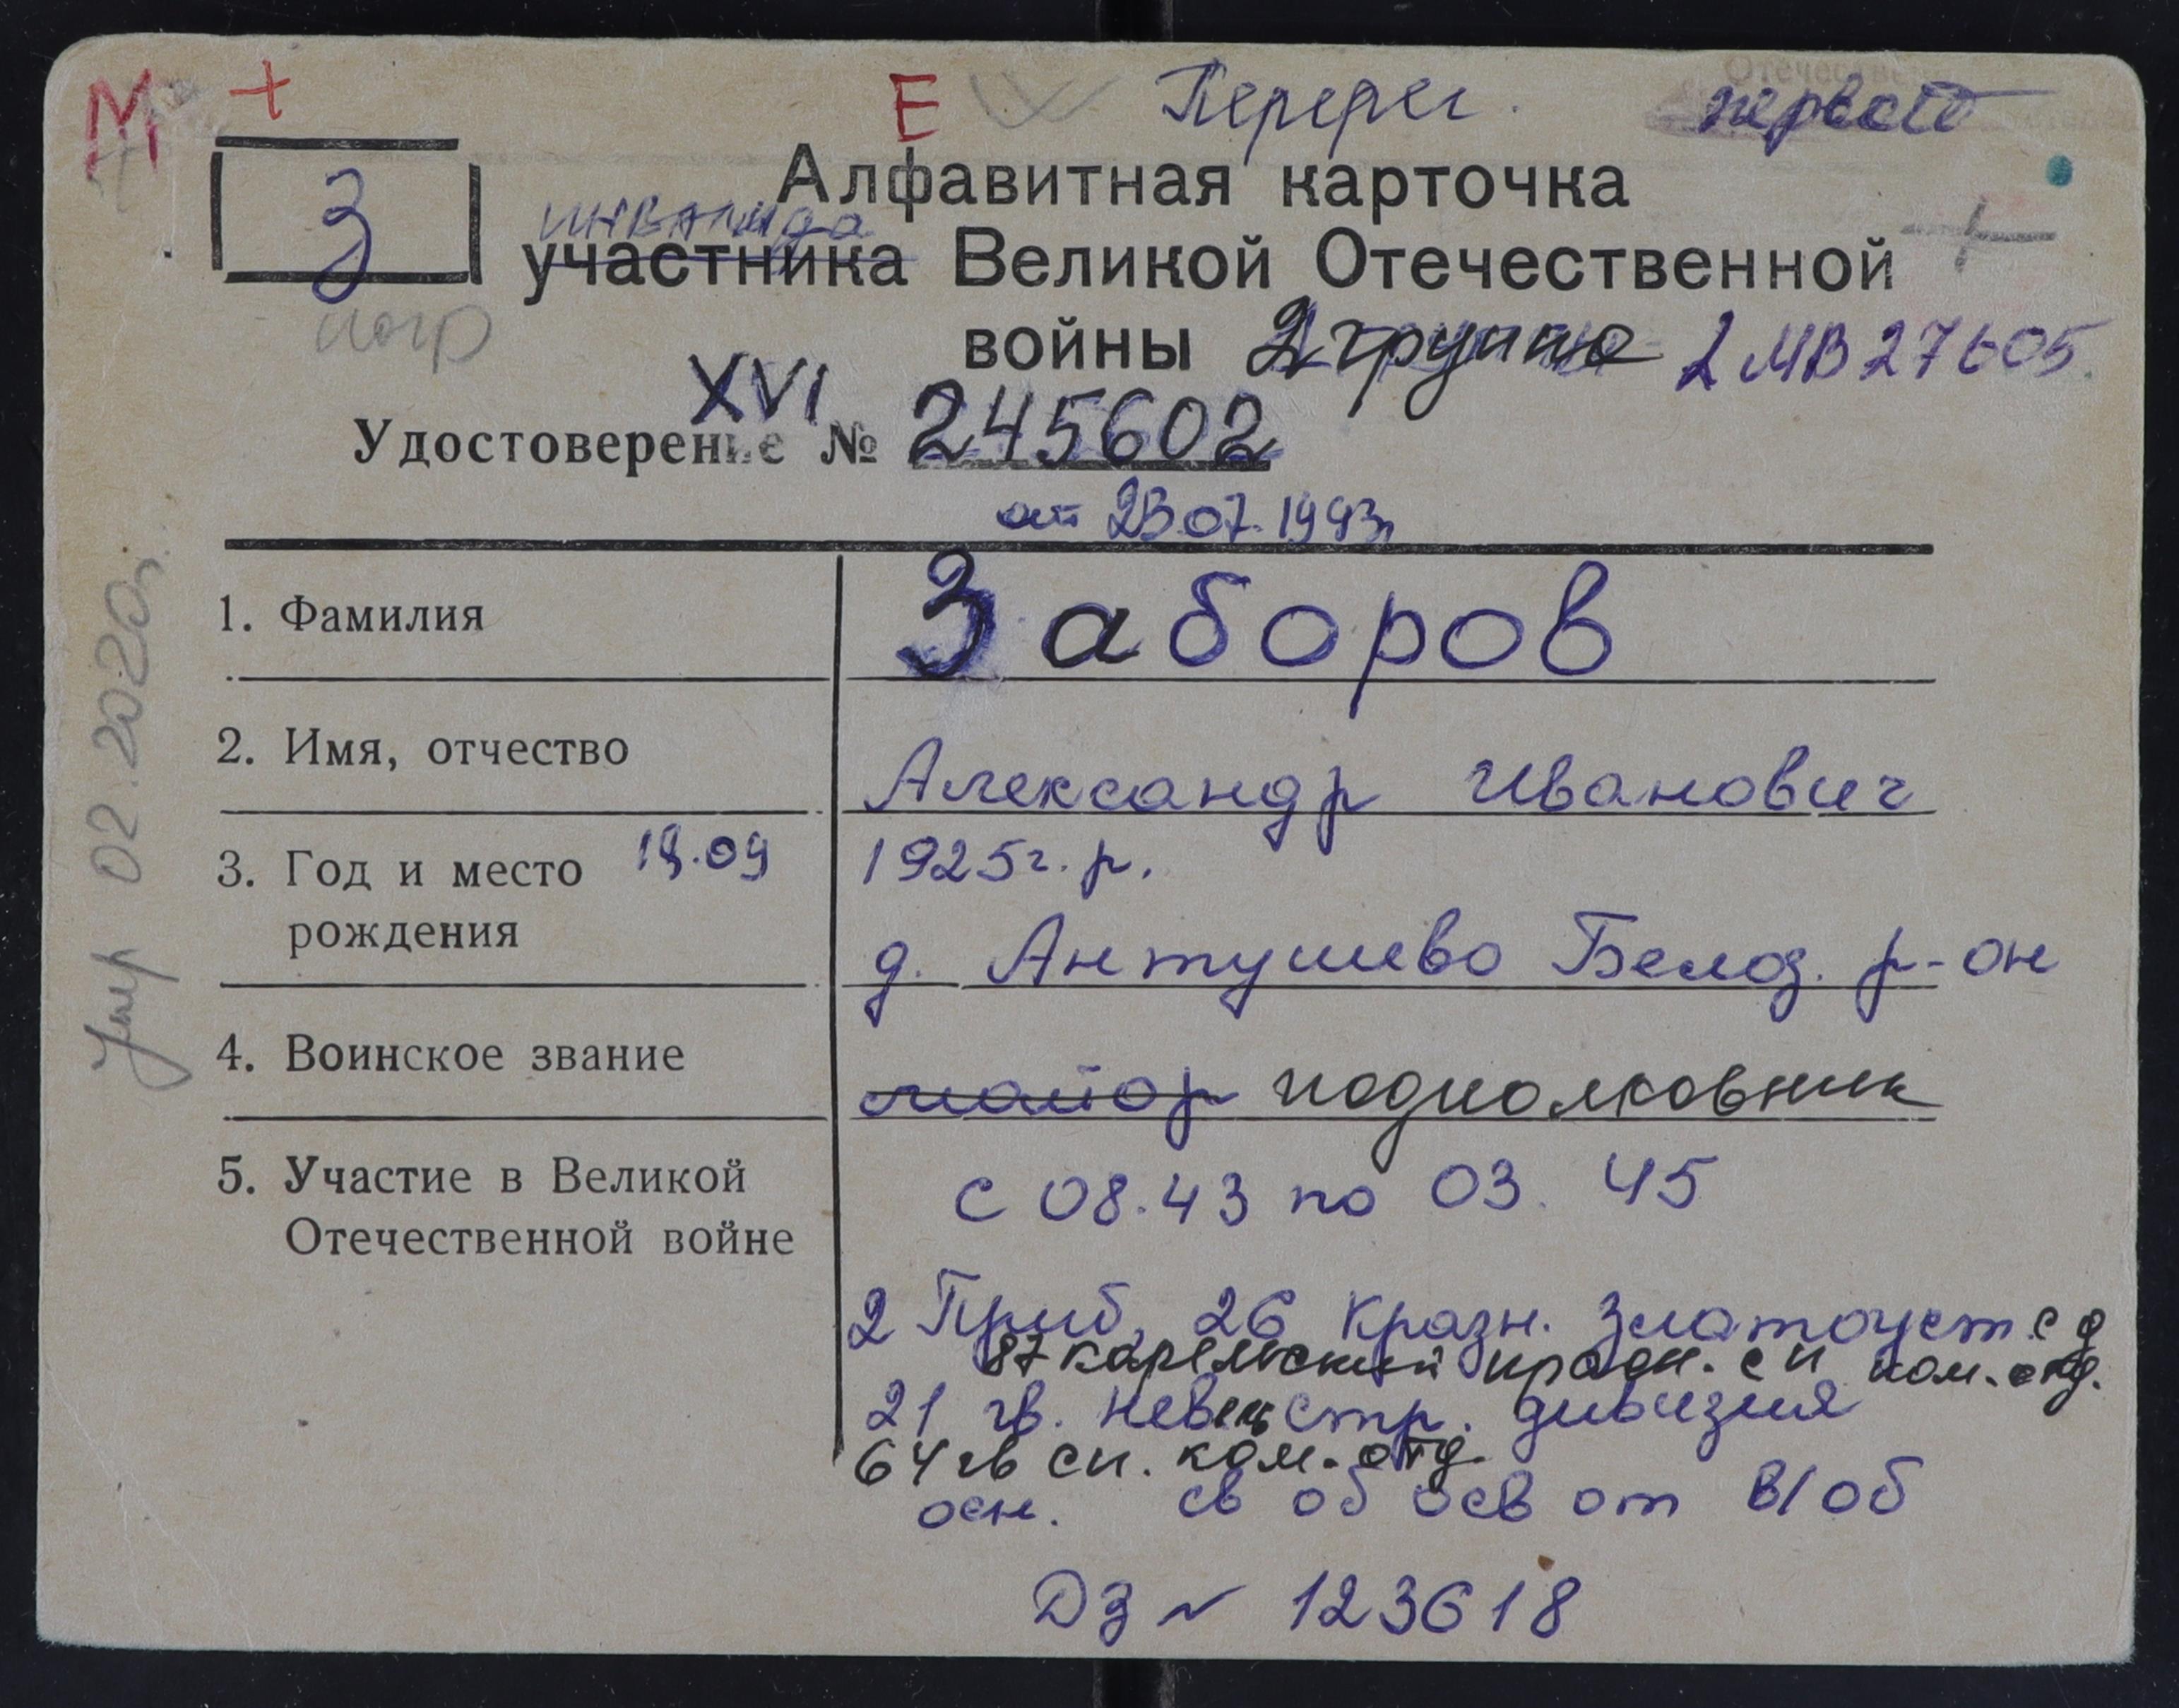 М + Е Перерег.
Алфавитная карточка
З инвалида
участника Великой Отечественной
войны 2 группа 2 МВ 27605.
XVI
Удостоверение № 245602
от 23.07.1993г
1. Фамилия Заборов
2. Имя, отчество Александр Иванович
3. Год и место 19.09 1925г.р.
рождения д. Антушево Белоз. р-он
4. Воинское звание майор подполковник
5. Участие в Великой с 08.43 по 03.45
Отечественной войне
2 Приб, 26 Кразн. Златоуст. с д
87 карельский кразн. с п ком. отд.
21 гв. невел стр. дивизия
64 гв сп. ком. отд.
осн. св об осв от в/об
ДЗ № 123618
Умер 02.2020г.